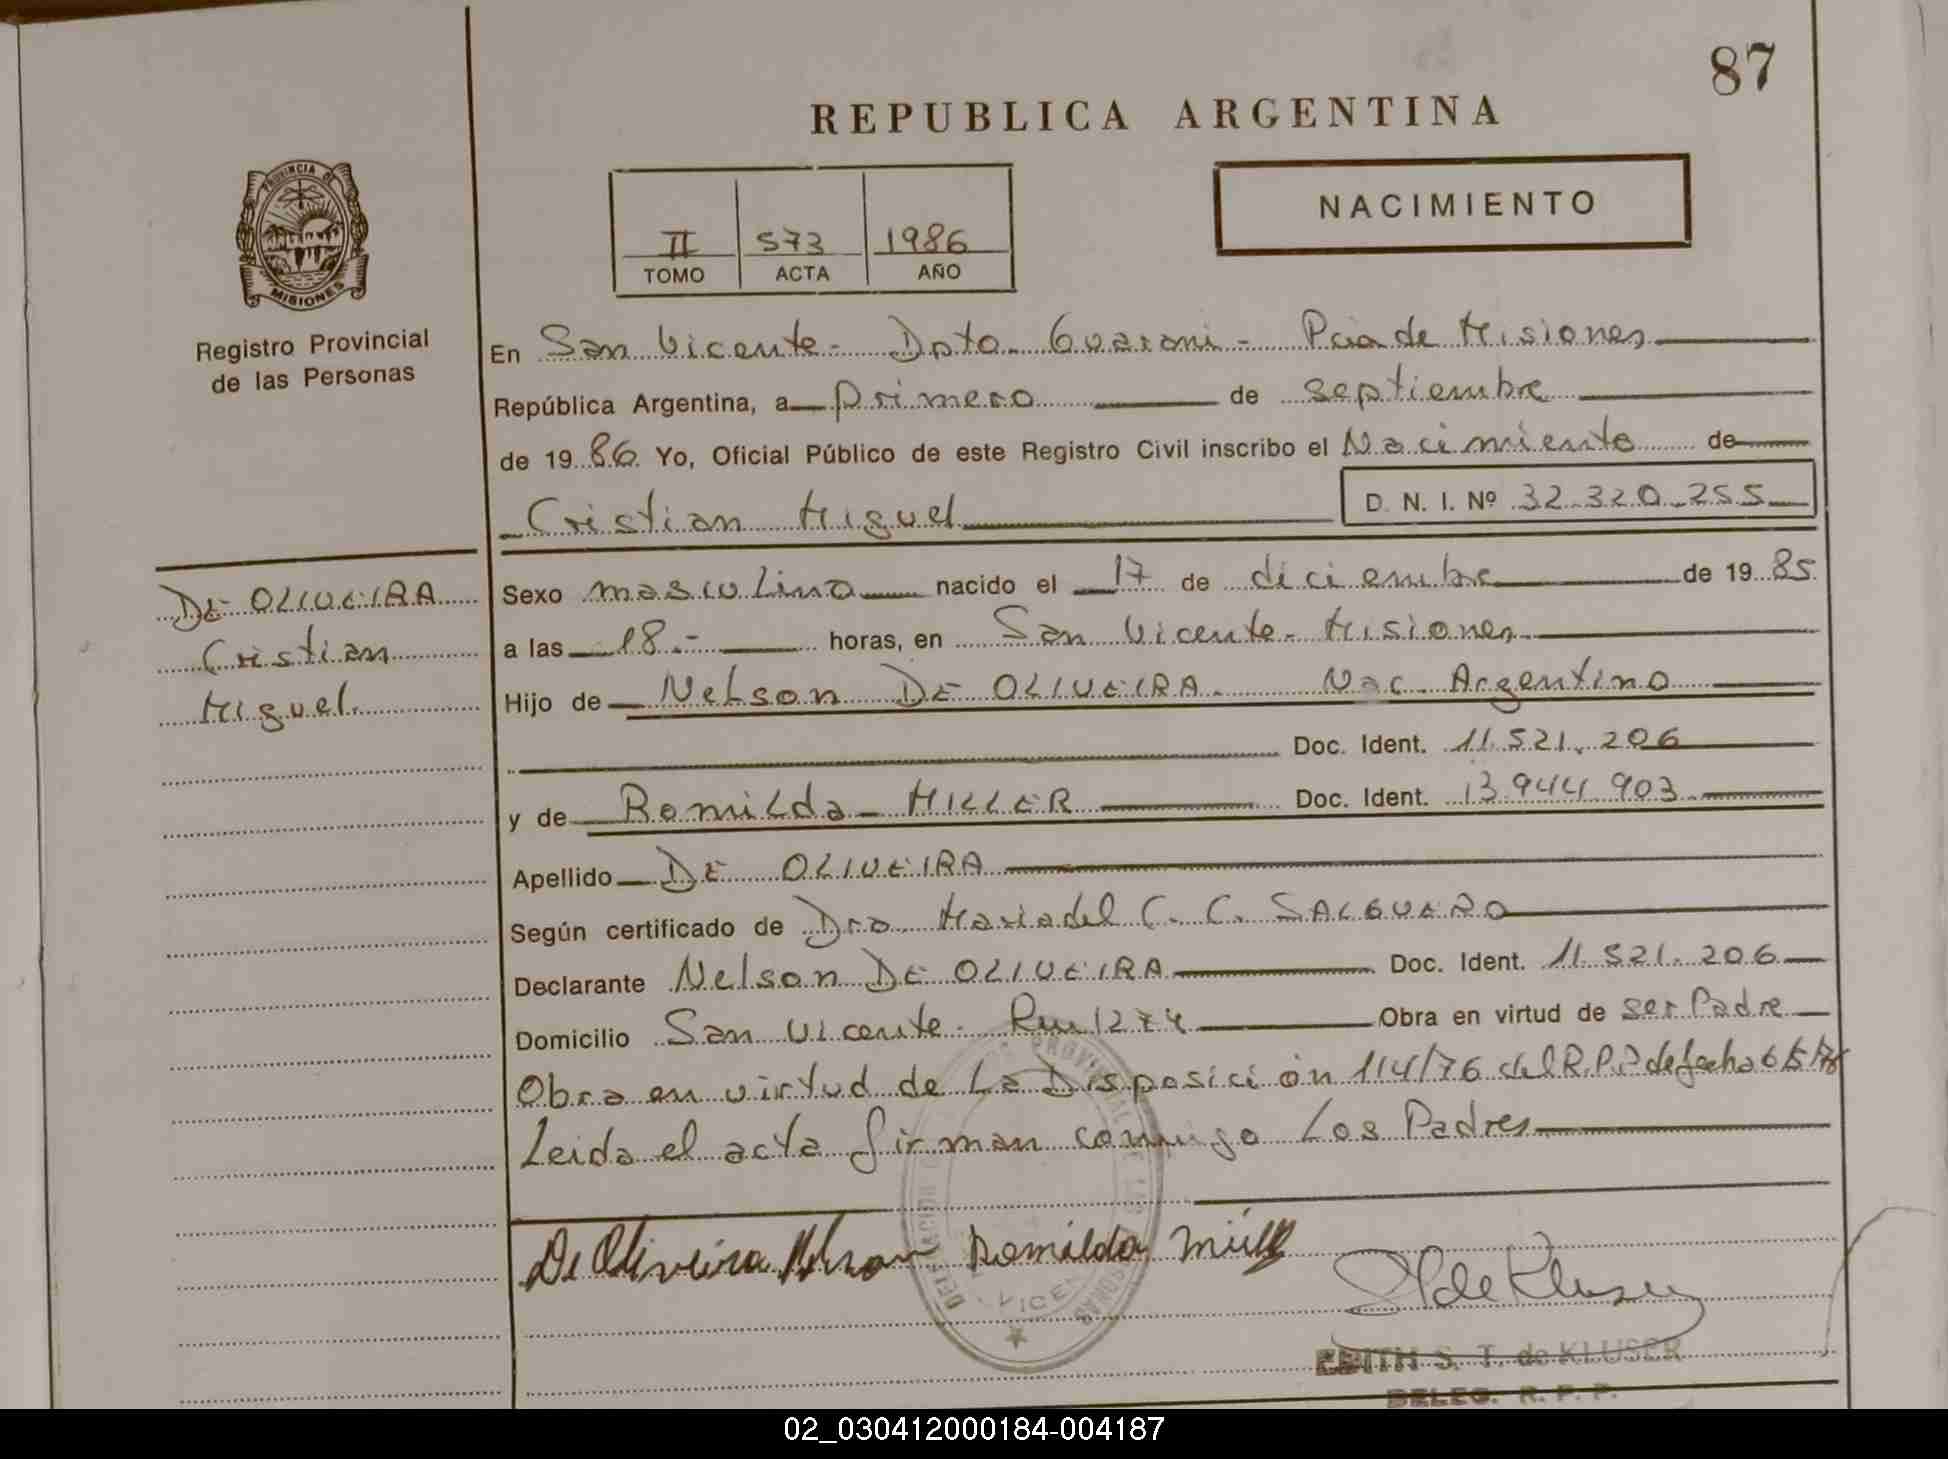 87
REPUBLICA ARGENTINA
PROVINCIA DE
MISIONES
Registro Provincial
de las Personas
II 573 1986
TOMO ACTA AÑO
NACIMIENTO
En San Vicente - Dpto. Guarani - Pcia de Misiones
República Argentina, a primero de septiembre
de 19 86 Yo, Oficial Público de este Registro Civil inscribo el Nacimiento de
Cristian Miguel D. N. I. Nº 32.320.255
DE OLIVEIRA
Cristian
Miguel
Sexo masculino nacido el 17 de diciembre de 19 85
a las 18.- horas, en San Vicente - Misiones
Hijo de Nelson DE OLIVEIRA. Nac. Argentino
Doc. Ident. 11.521.206
y de Romilda MILLER Doc. Ident. 13.944.903
Apellido DE OLIVEIRA
Según certificado de Dra. Maria del C. C. SALGUERO
Declarante Nelson DE OLIVEIRA Doc. Ident. 11.521.206
Domicilio San Vicente - 1274 Obra en virtud de ser Padre
Obra en virtud de La Disposición 114/76 del R.P.P de fecha 6/5/76
Leida el acta firman conmigo Los Padres
De Oliveira Nelson Romilda
EDITH S. T. de KLUSER
DELEG. R. P. P.
02_030412000184-004187